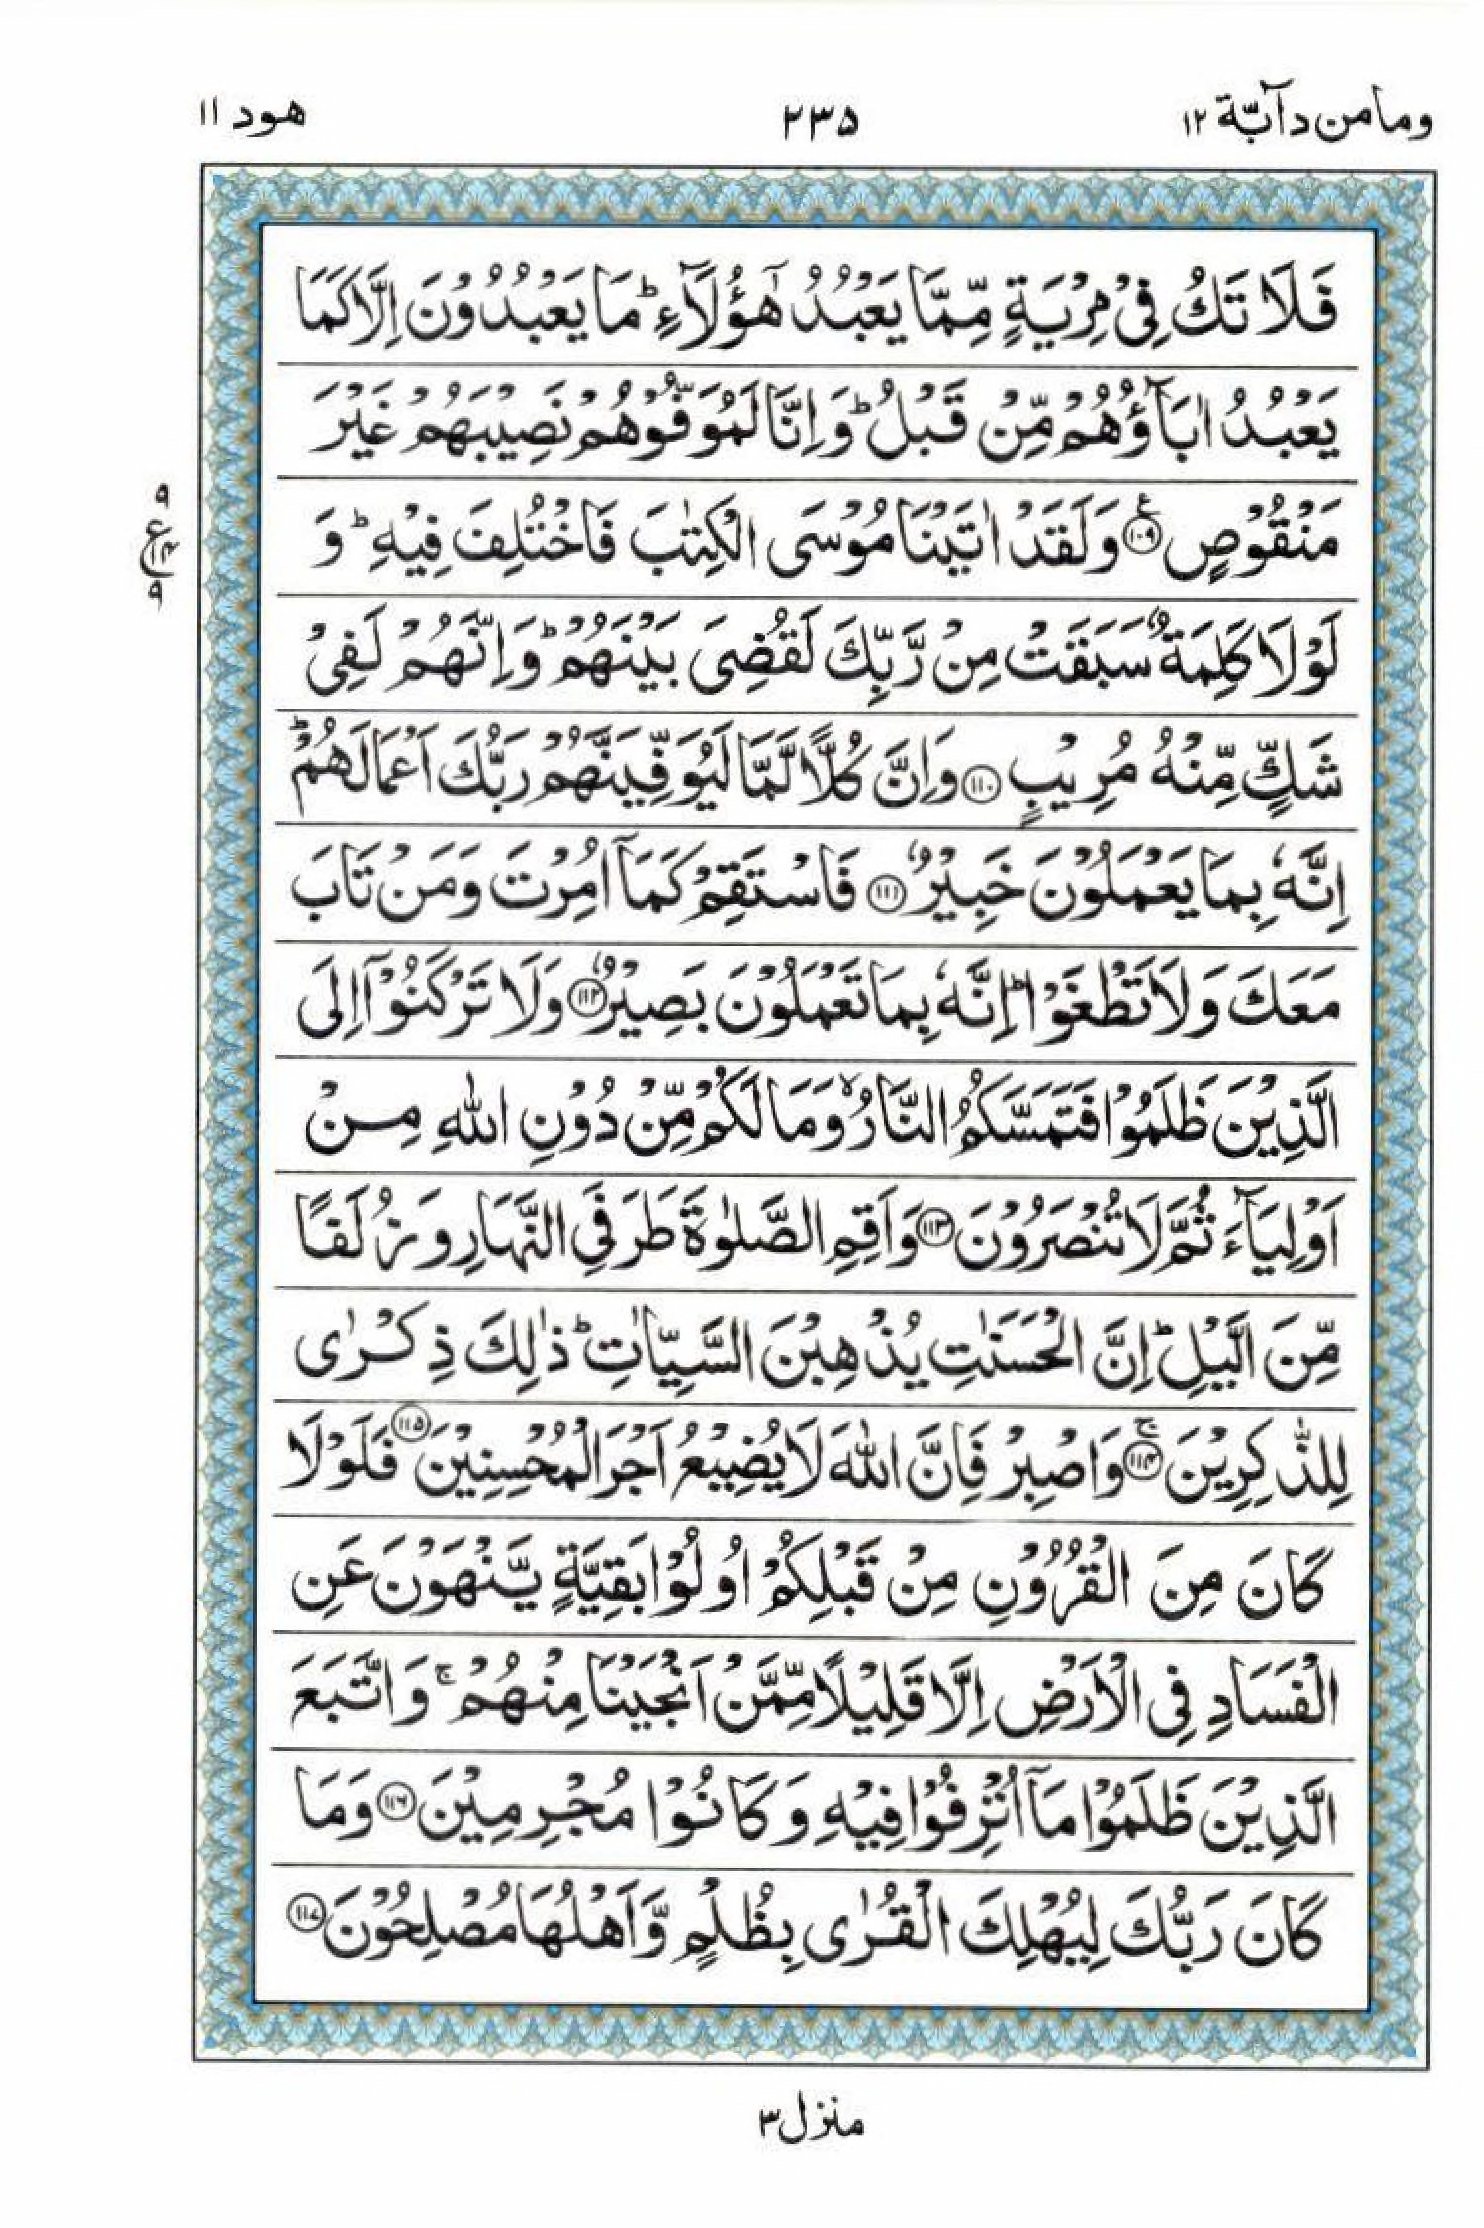 ومامن دآبّة ١٢
٢٣٥
هود ١١
فَلَا تَكُ فِیْ مِرْیَةٍ مِّمَّا یَعْبُدُ هٰۤؤُلَآءِ ؕ مَا یَعْبُدُوْنَ اِلَّا كَمَا
یَعْبُدُ اٰبَآؤُهُمْ مِّنْ قَبْلُ ؕ وَ اِنَّا لَمُوَفُّوْهُمْ نَصِیْبَهُمْ غَیْرَ
مَنْقُوْصٍ ۧ ﴿۱۰۹﴾ وَ لَقَدْ اٰتَیْنَا مُوْسَی الْكِتٰبَ فَاخْتُلِفَ فِیْهِ ؕ وَ
لَوْ لَا كَلِمَةٌ سَبَقَتْ مِنْ رَّبِّكَ لَقُضِیَ بَیْنَهُمْ ؕ وَ اِنَّهُمْ لَفِیْ
شَكٍّ مِّنْهُ مُرِیْبٍ ﴿۱۱۰﴾ وَ اِنَّ كُلًّا لَّمَّا لَیُوَفِّیَنَّهُمْ رَبُّكَ اَعْمَالَهُمْ ؕ
اِنَّهٗ بِمَا یَعْمَلُوْنَ خَبِیْرٌ ﴿۱۱۱﴾ فَاسْتَقِمْ كَمَاۤ اُمِرْتَ وَ مَنْ تَابَ
مَعَكَ وَ لَا تَطْغَوْا ؕ اِنَّهٗ بِمَا تَعْمَلُوْنَ بَصِیْرٌ ﴿۱۱۲﴾ وَ لَا تَرْكَنُوْۤا اِلَی
الَّذِیْنَ ظَلَمُوْا فَتَمَسَّكُمُ النَّارُ ۙ وَ مَا لَكُمْ مِّنْ دُوْنِ اللّٰهِ مِنْ
اَوْلِیَآءَ ثُمَّ لَا تُنْصَرُوْنَ ﴿۱۱۳﴾ وَ اَقِمِ الصَّلٰوةَ طَرَفَیِ النَّهَارِ وَ زُلَفًا
مِّنَ الَّیْلِ ؕ اِنَّ الْحَسَنٰتِ یُذْهِبْنَ السَّیِّاٰتِ ؕ ذٰلِكَ ذِكْرٰی
لِلذّٰكِرِیْنَ ۚ ﴿۱۱۴﴾ وَ اصْبِرْ فَاِنَّ اللّٰهَ لَا یُضِیْعُ اَجْرَ الْمُحْسِنِیْنَ ﴿۱۱۵﴾ فَلَوْ لَا
كَانَ مِنَ الْقُرُوْنِ مِنْ قَبْلِكُمْ اُولُوْا بَقِیَّةٍ یَّنْهَوْنَ عَنِ
الْفَسَادِ فِی الْاَرْضِ اِلَّا قَلِیْلًا مِّمَّنْ اَنْجَیْنَا مِنْهُمْ ۚ وَ اتَّبَعَ
الَّذِیْنَ ظَلَمُوْا مَاۤ اُتْرِفُوْا فِیْهِ وَ كَانُوْا مُجْرِمِیْنَ ﴿۱۱۶﴾ وَ مَا
كَانَ رَبُّكَ لِیُهْلِكَ الْقُرٰی بِظُلْمٍ وَّ اَهْلُهَا مُصْلِحُوْنَ ﴿۱۱۷﴾
۹
ع
۱۴
۹
منزل ۳